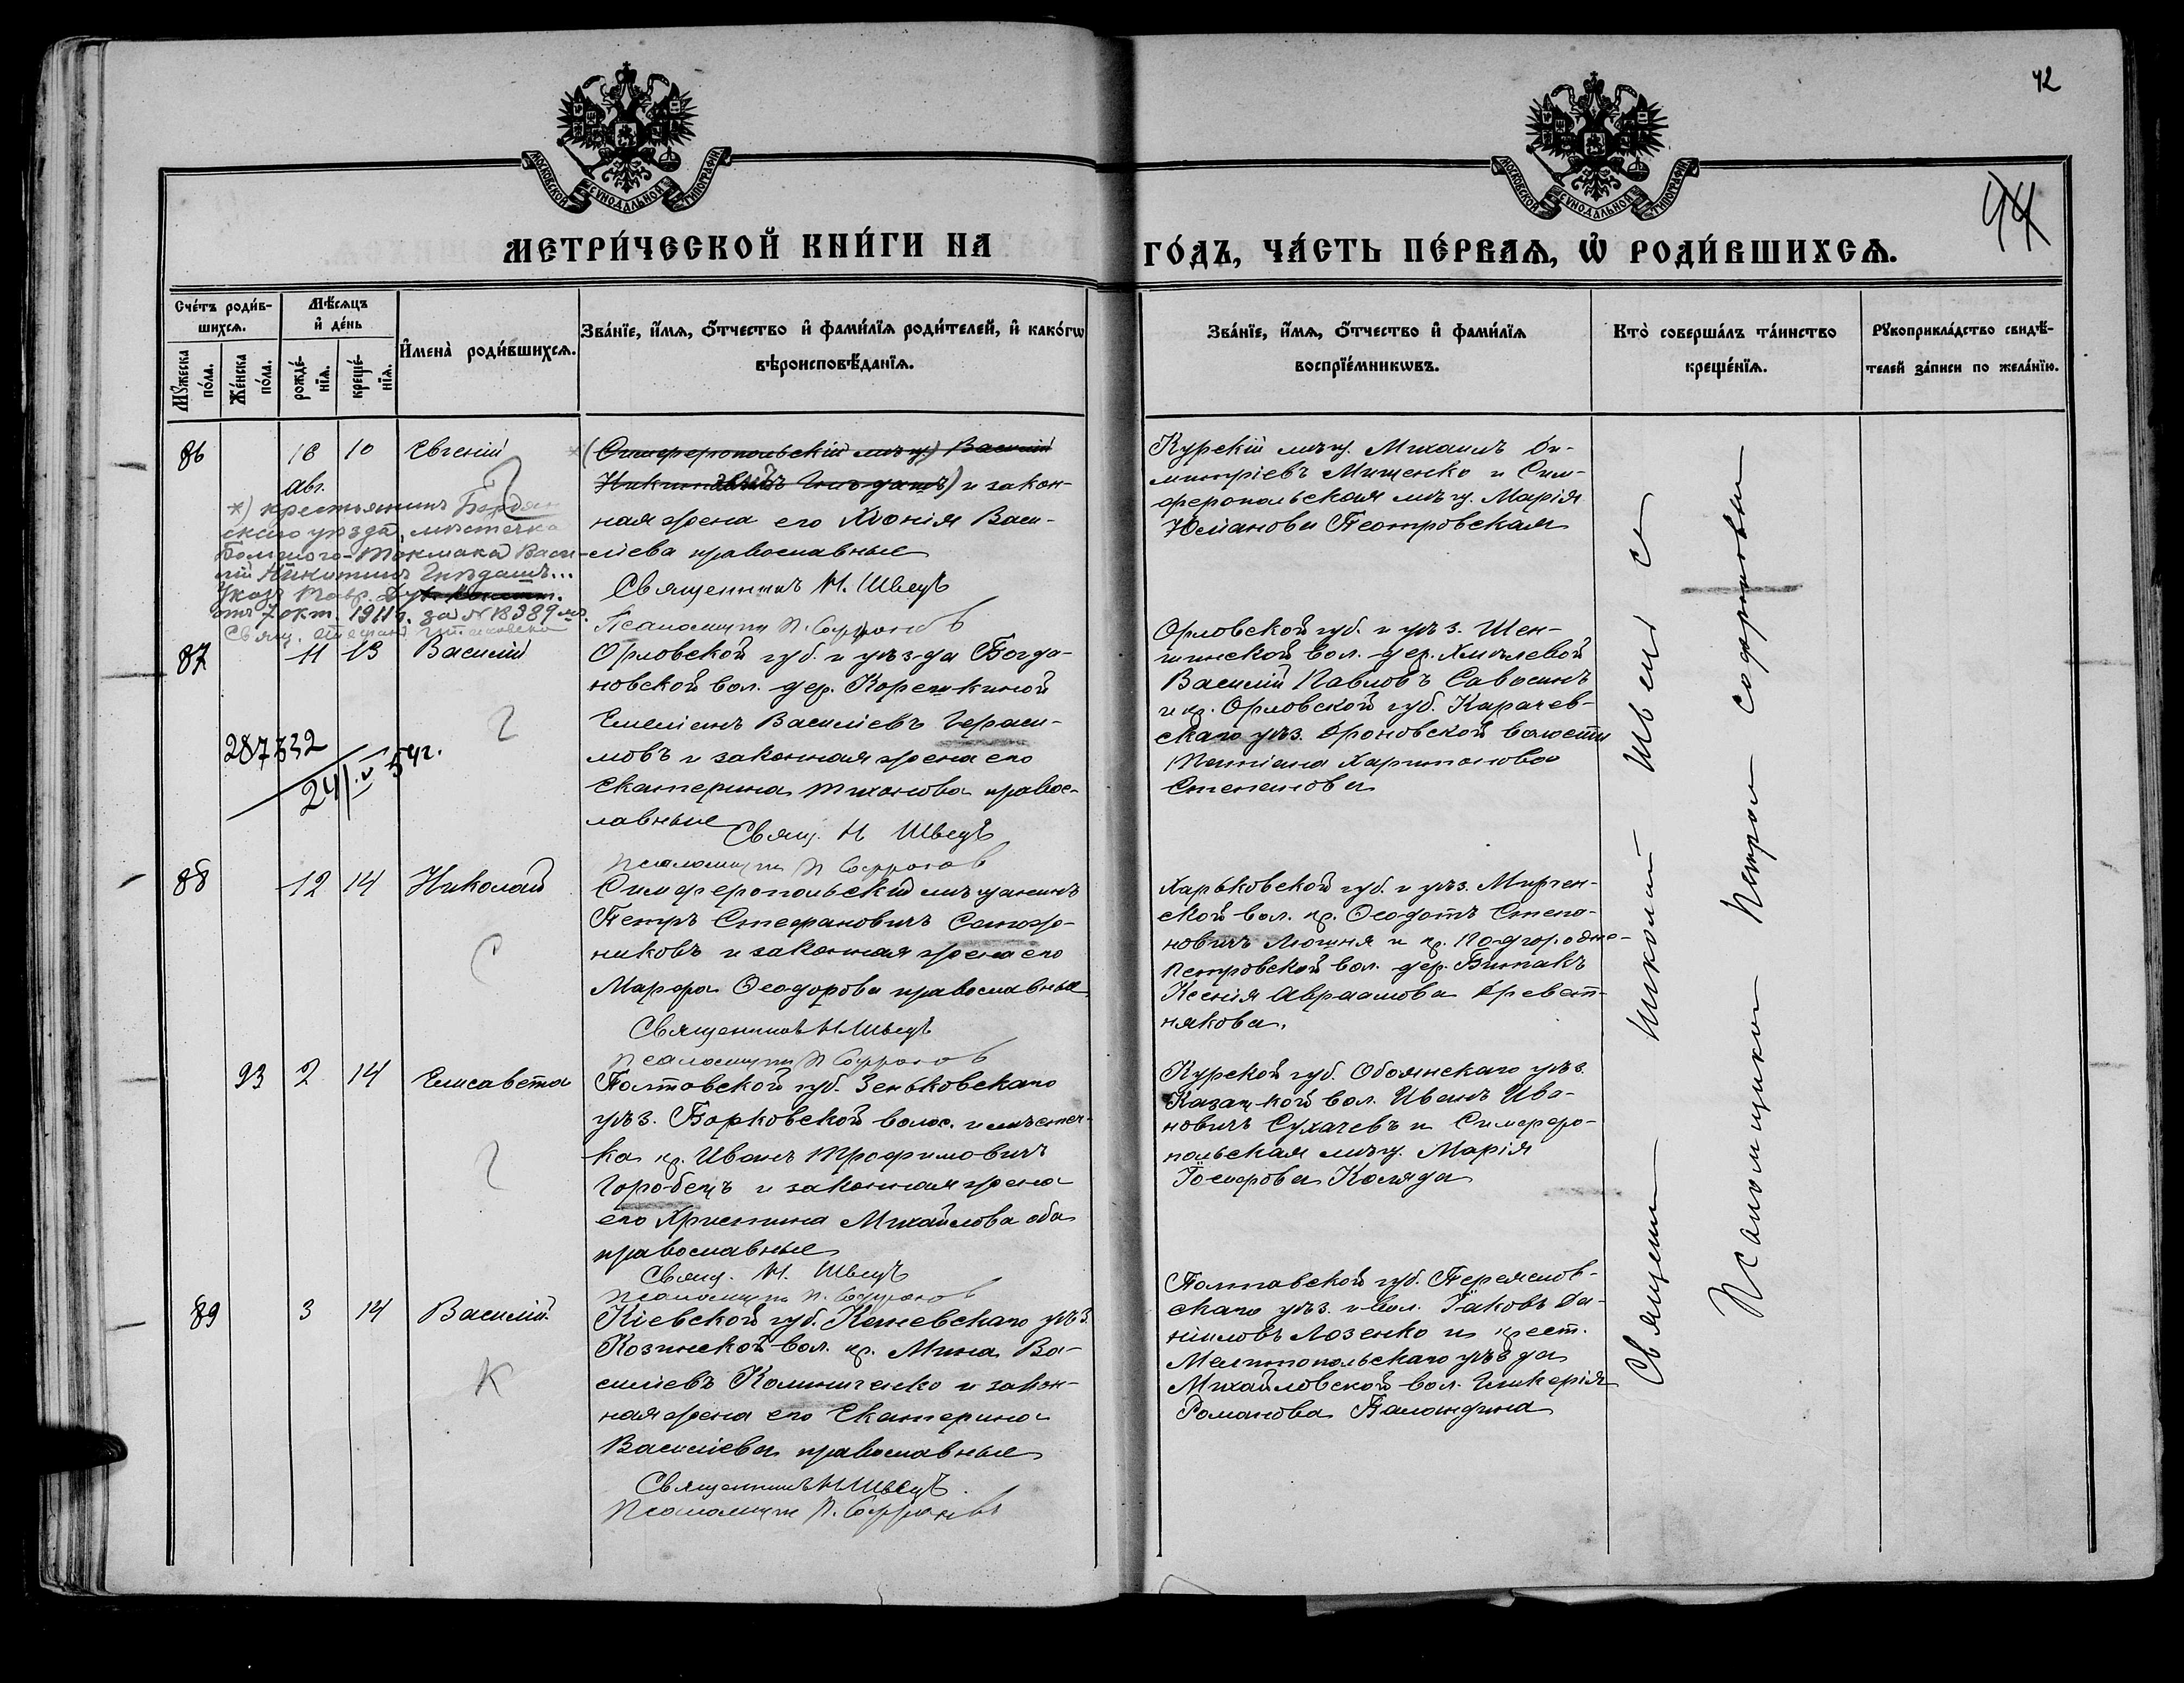 42
94
МОСКОВСКОЙ СѴНОДАЛЬНОЙ ТИПОГРАФІИ
МОСКОВСКОЙ СѴНОДАЛЬНОЙ ТИПОГРАФІИ
МЕТРИ́ЧЕСКОЙ КНИ́ГИ НА
ГО́ДЪ, ЧА́СТЬ ПЕ́РВАѦ, Ѡ҆ РОДИ́ВШИХСѦ.
Сче́тъ роди́в-
шихсѧ.
Мꙋ́жеска по́ла.
Же́нска по́ла.
Мѣ́сѧцъ
и҆ де́нь
рожде́-
нїѧ.
креще́-
нїѧ.
И҆мена̀ роди́вшихсѧ.
Зва́нїе, и҆́мѧ, ѻ҆́тчество и҆ фами́лїѧ роди́телей, и҆ како́гѡ
вѣроисповѣ́данїѧ.
Зва́нїе, и҆́мѧ, ѻ҆́тчество и҆ фами́лїѧ
воспрїе́мникѡвъ.
Кто̀ соверша́лъ та́инство
креще́нїѧ.
Рꙋкоприкла́дство свидѣ́-
телей за́писи по жела́нїю.
86
10
Евгеній
авг.
(Симферопольскій мѣщ.) Василій
Никитинъ Гнѣдашъ) и закон-
ная жена его Хіонія Васи-
ліева православные
Священникъ Н. Швецъ
Псаломщик П. Софронов
*) крестьянинъ Бердян
скаго уѣзда, мѣстечка
Большого-Токмака Васи-
лій Никитинъ Гнѣдашъ...
Указ Тавр. Дух. Консист.
отъ 7 окт. 1911 г. за № 18389
Свящ.
Курскій мѣщ. Михаилъ Ди-
митріевъ Мищенко и Сим-
феропольская мѣщ. Марія
Юліанова Пеотровская
87
11
13
Василій
Орловской губ. и уѣзда Богда-
новской вол. дер. Корешкиной
Емеліанъ Василіевъ Гераси-
мовъ и законная жена его
Екатерина Тихонова правос-
лавные
Свящ. Н Швецъ
Псаломщик П Софронов
Г
287332
24/V 54г.
Орловской губ. и уѣз. Шен-
шинской вол. дер. Хмѣлевой
Василій Павловъ Савосинъ
и кр. Орловской губ. Карачев-
скаго уѣз. Дроновской волости
Татіана Харитонова
Степанова
88
12
14
Николай
С
Симферопольскій мѣщанинъ
Петръ Стефановичъ Сапож-
никовъ и законная жена его
Марфа Ѳеодорова православные
Священникъ Н Швецъ
Псаломщик П Софронов
Харьковской губ. и уѣз.
ской вол. кр. Ѳеодотъ Степа-
новичъ Люшня и кр. Подгородне-
Петровской вол. дер. Битакъ
Ксенія Авраамова Древет-
някова.
93
2
14
Елисавета
Г
Полтавской губ. Зеньковскаго
уѣз. Борковской волос. и мѣстеч-
ка кр. Иванъ Трофимовичъ
Горобецъ и законная жена
его Христина Михайлова оба
православные
Свящ. Н. Швецъ
Псаломщик П. Софронов
Курской губ. Обоянскаго уѣз.
Казацкой вол. Иванъ Ива-
новичъ Сухачевъ и Симферо-
польская мѣщ. Марія
Іосифова Коляда
89
3
14
Василій.
К
Кіевской губ. Каневскаго уѣз.
Козинской вол. кр. Мина Ва-
силіевъ Калиниченко и закон-
ная жена его Екатерина
Василіева православные
Священникъ Н Швецъ.
Псаломщик П. Софроновъ
Полтавской губ. Переяслов-
скаго уѣз. и вол. Іаковъ Да-
ніиловъ Лозенко и крест.
Мелитопольскаго уѣзда
Михайловской вол. Гликерія
Романова Баландина
Священник Николай Швец с
Псаломщиком Петром Софроновым